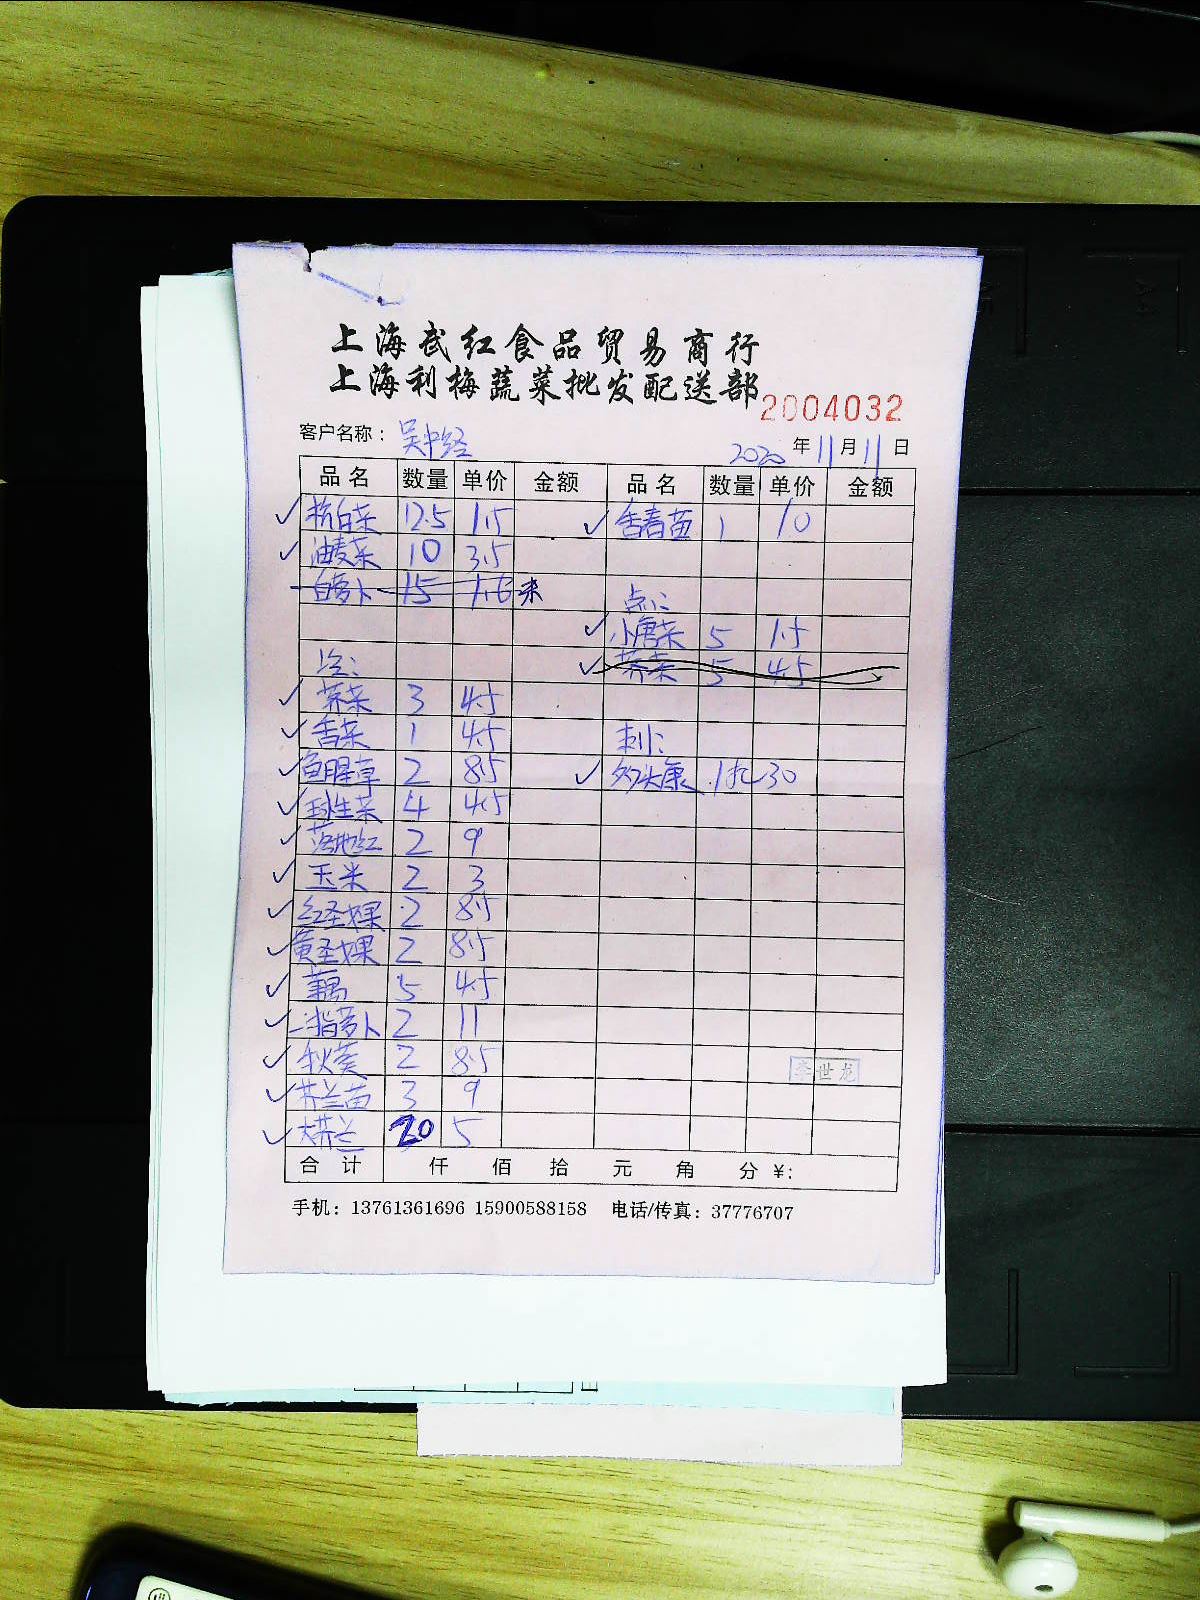 上海武红食品贸易商行
上海利梅蔬菜批发配送部
2004032
客户名称： 吴中经 2020 年 11 月 11 日
品名 数量 单价 金额 品名 数量 单价 金额
✓ 杭白菜 12.5 1.5 ✓ 香春苗 1 10
✓ 油麦菜 10 3.5
白萝卜 15 1.6 未 点心：
✓ 小唐菜 5 1.5
冷： ✓ 荠菜 5 4.5
✓ 荠菜 3 4.5
✓ 香菜 1 4.5 刺：
✓ 鱼腥草 2 8.5 ✓ 30
✓ 球生菜 4 4.5
✓ 落地红 2 9
✓ 玉米 2 3
✓ 红圣女果 2 8.5
✓ 黄圣女果 2 8.5
✓ 藕 5 4.5
✓ 手指萝卜 2 11
✓ 秋葵 2 8.5
李世龙
✓ 芥兰苗 3 9
✓ 大芥兰 20 5
合计 仟 佰 拾 元 角 分 ¥:
手机：13761361696 15900588158 电话/传真：37776707